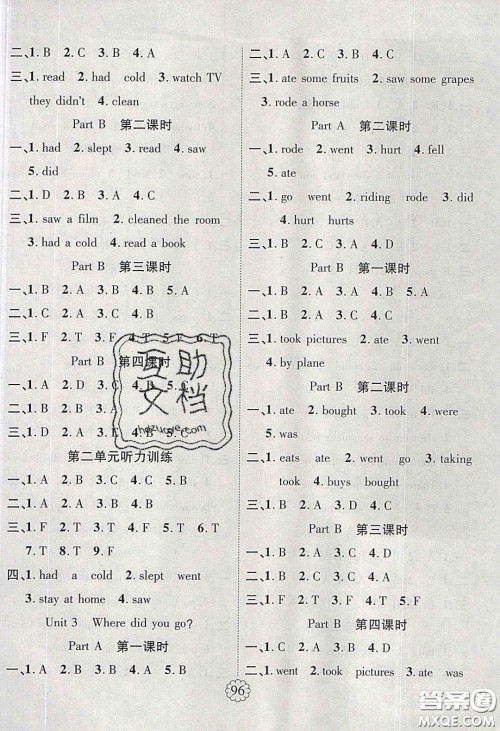 二、1. B 2. C 3. B 4. A
三、1. read 2. had cold 3. watch TV
they didn't 4. clean
Part B 第二课时
一、1. had 2. slept 3. read 4. saw
5. did
二、1. D 2. B 3. A 4. C
三、1. saw a film 2. cleaned the room
3. had a cold 4. read a book
Part B 第三课时
一、1. A 2. B 3. A 4. B 5. A
二、1. B 2. C 3. A 4. C
三、1. F 2. F 3. F 4. T 5. F 6. T
Part B 第四课时
一、1. A 2. B 3. C 4. B 5.
二、1. C 2. C 3. A 4.
三、1. D 2. C 3. A 4. B 5.
第二单元听力训练
一、1. B 2. A 3. B 4. A 5. B
二、1. B 2. A 3. B 4. C 5. B
三、1. F 2. T 3. F 4. T 5. T 6. T
7. T 8. T 9. F 10. F
四、1. had a cold 2. slept went
3. stay at home 4. saw
Unit 3 Where did you go?
Part A 第一课时
一、1. B 2. A 3. A 4. B 5. A
二、1. B 2. B 3. A 4. C
三、1. ate some fruits 2. saw some grapes
3. rode a horse
Part A 第二课时
一、1. rode 2. went 3. hurt 4. fell
5. ate
二、1. go went 2. riding rode 3. did
4. hurt hurts
三、1. C 2. B 3. A 4. D
Part B 第一课时
一、1. B 2. A 3. B 4. A
二、1. B 2. C 3. A 4. D
三、1. took pictures 2. ate 3. went
4. by plane
Part B 第二课时
一、1. ate 2. bought 3. took 4. were
5. was
二、1. eats ate 2. went go 3. taking
took 4. buys bought
三、1. B 2. D 3. A 4. C
Part B 第三课时
一、1. B 2. A 3. C 4. D
二、1. B 2. A 3. C 4. D
三、1. F 2. T 3. T 4. F 5. T
Part B 第四课时
一、1. B 2. C 3. A 4. D
二、1. went 2. took pictures 3. ate was
96
互助
文档
hezuowe.com
答案圈
MXQE.COM